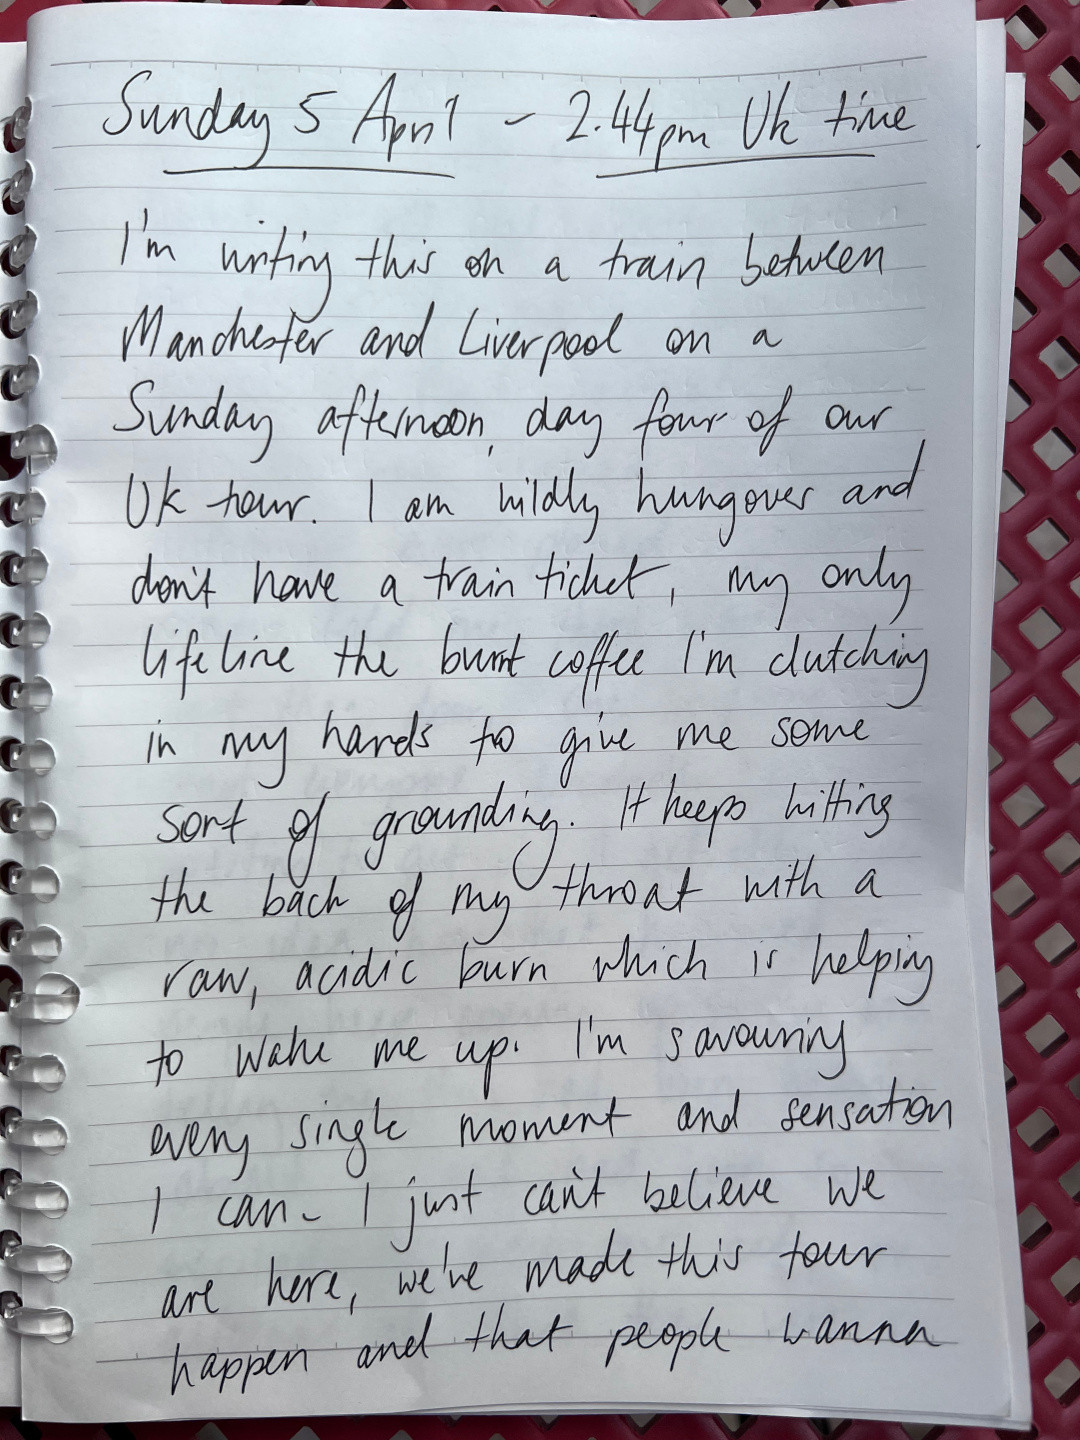 Sunday 5 April - 2.44pm UK time
I'm writing this on a train between
Manchester and Liverpool on a
Sunday afternoon, day four of our
UK tour. I am wildly hungover and
don't have a train ticket, my only
lifeline the burnt coffee I'm clutching
in my hands to give me some
sort of grounding. It keeps hitting
the back of my throat with a
raw, acidic burn which is helping
to wake me up. I'm savouring
every single moment and sensation
I can - I just can't believe we
are here, we've made this tour
happen and that people wanna